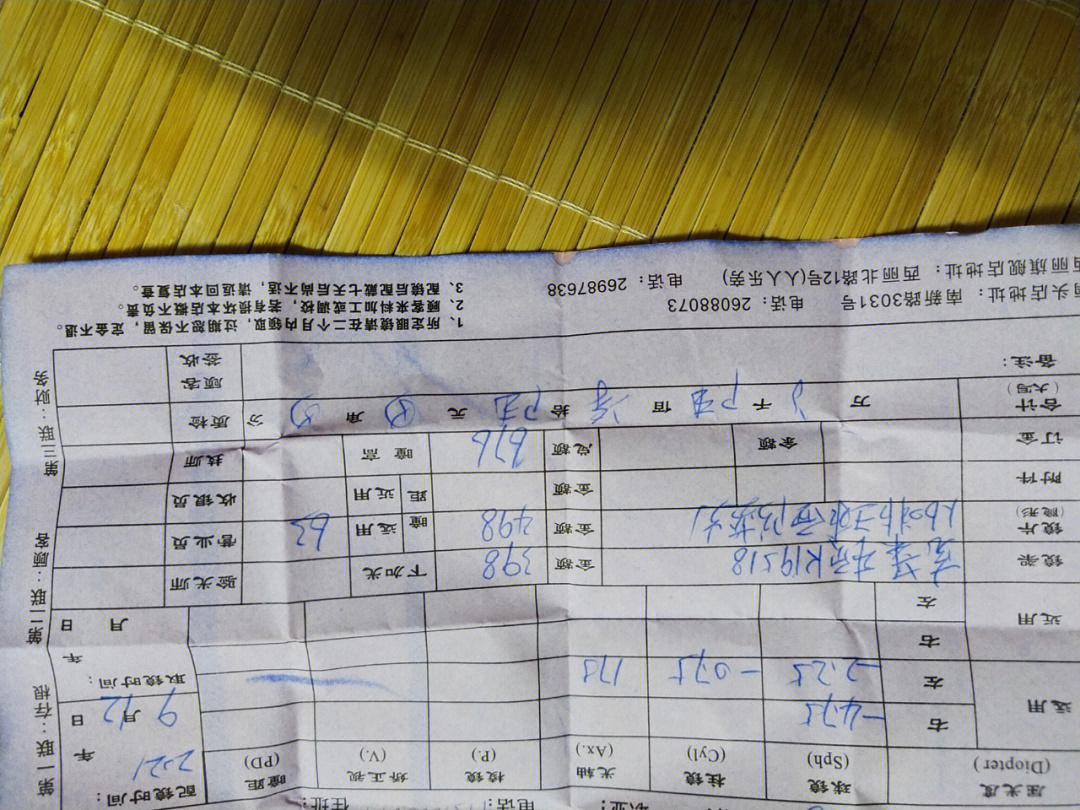 职业： 电话： 住址：
屈光度 (Diopter) 球镜 (Sph) 柱镜 (Cyl) 光轴 (Ax.) 棱镜 (P.) 矫正视 (V.) 瞳距 (PD) 配镜时间：
2021 年
远用 右 -4.75 9 月 12 日
左 -2.25 -0.75 175 取镜时间：
近用 右 年
左 月 日
镜架 R19518 金额 398 下加光 验光师
镜片 (隐形) 金额 498 瞳距 远用 63 营业员
附件 金额 近用 收银员
订金 余额 总额 676 瞳高 技师
合计 (大写) 万 千 佰 拾 元 角 分 质检
备注： 顾客签收
南新路3031号 电话：26088073
西丽旗舰店地址：西丽北路12号(人人乐旁) 电话：26987638
1、所定眼镜请在二个月内领取，过期恕不保留，定金不退。
2、顾客来料加工或调校，若有损坏本店概不负责。
3、配镜后配戴七天后尚不适，请返回本店复查。
第一联：存根 第二联：顾客 第三联：财务